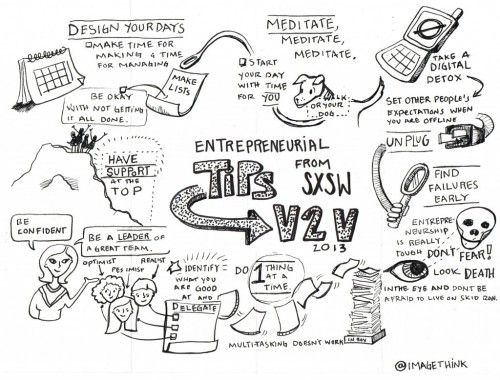 DESIGN YOUR DAYS
MAKE TIME FOR
MAKING & TIME
FOR MANAGING
MAKE
LISTS
BE OKAY
WITH NOT GETTING
IT ALL DONE.
MEDITATE,
MEDITATE,
MEDITATE.
START
YOUR DAY
WITH TIME
FOR YOU
WALK
OR YOUR
DOG
TAKE A
DIGITAL
DETOX
SET OTHER PEOPLE'S
EXPECTATIONS WHEN
YOU ARE OFFLINE
UNPLUG
HAVE
SUPPORT
AT THE
TOP
ENTREPRENEURIAL
TIPS
FROM
SXSW
V2V
2013
FIND
FAILURES
EARLY
ENTREPRE-
NEURSHIP
IS REALLY
TOUGH DON'T FEAR!
LOOK DEATH
IN THE EYE AND DON'T BE
AFRAID TO LIVE ON SKID ROW.
BE
CONFIDENT
BE A LEADER OF
A GREAT TEAM.
OPTIMIST
REALIST
PESIMIST
IDENTIFY
WHAT YOU
ARE GOOD
AT AND
DELEGATE
DO 1 THING
AT A
TIME.
MULTI-TASKING DOESN'T WORK
IN BOX
@IMAGETHINK